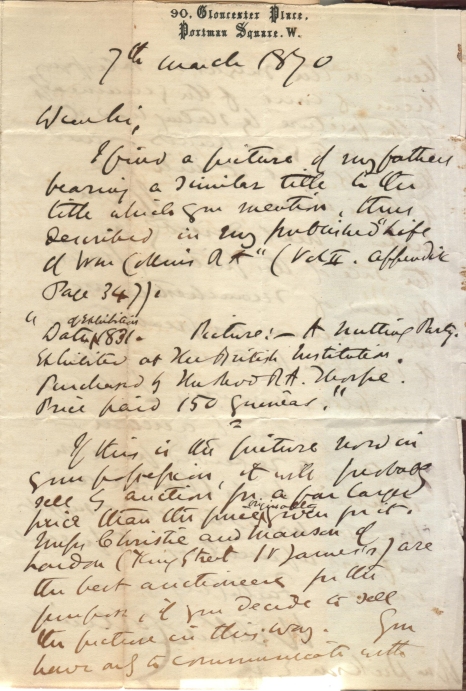 90, Gloucester Place,
Portman Square. W.
7th March 1870
Dear Sir,
I find a picture of my father's
bearing a similar title to the
title which you mention, thus
described in my published "Life
of Wm Collins R A" (Vol II. Appendix
Page 347).
"Date of Exhibition 1831. Picture:— A Nutting Party.
Exhibited at The British Institution.
Purchased by The Revd R.A. Thorpe.
Price paid 150 guineas."
If this is the picture now in
your possession, it will probably
sell by auction for a far larger
price than the price originally given for it.
Messrs Christie and Manson of
London (King Street St James's) are
the best auctioneers for the
purpose, if you decide to sell
the picture in this way. You
have only to communicate with